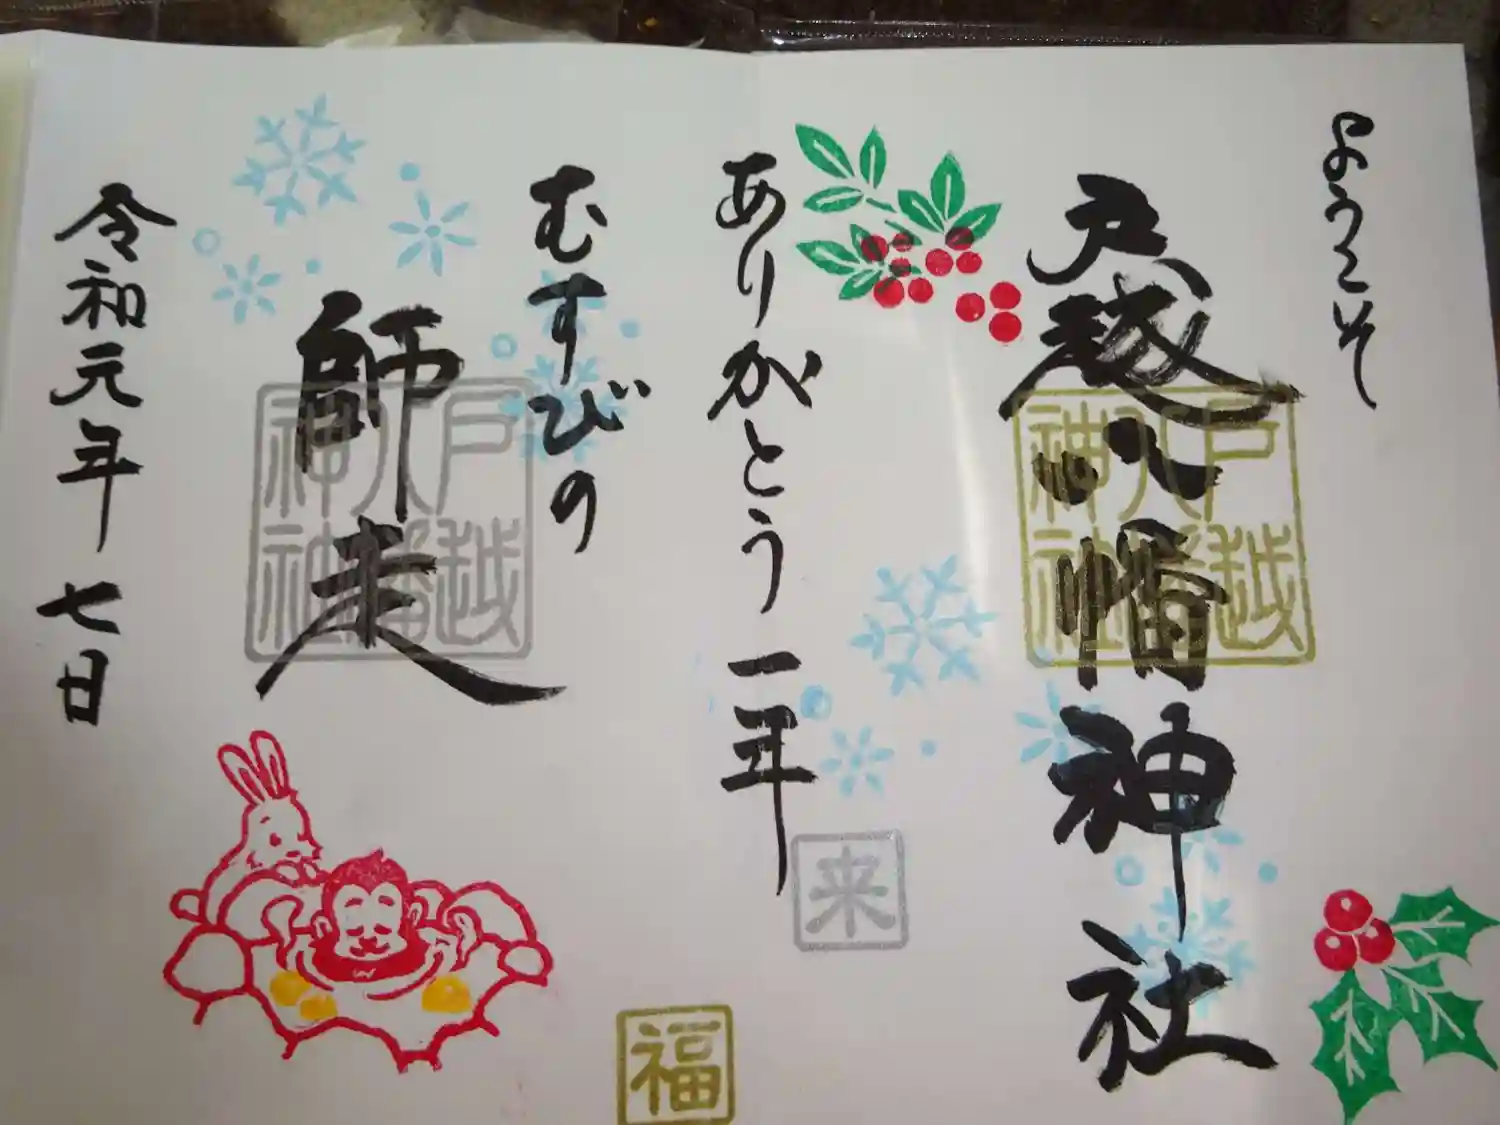 ようこそ
戸越八幡神社
戸越
八幡
神社
ありがとう一年
来
福
むすびの
師走
戸越
八幡
神社
令和元年 七日